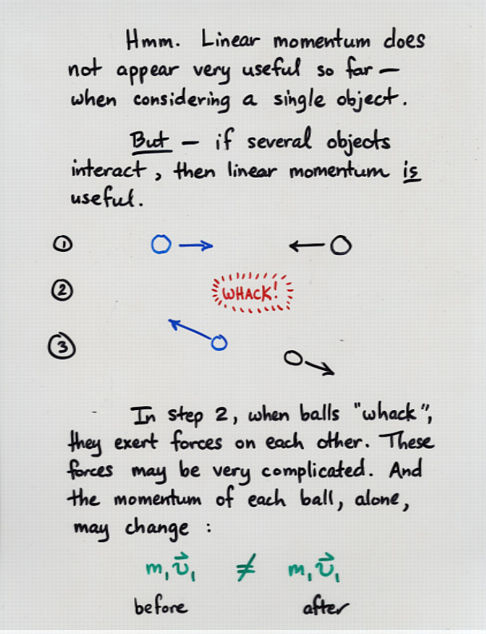 Hmm. Linear momentum does
not appear very useful so far —
when considering a single object.
But — if several objects
interact, then linear momentum is
useful.
①
②
WHACK!
③
In step 2, when balls "whack",
they exert forces on each other. These
forces may be very complicated. And
the momentum of each ball, alone,
may change :
m₁v⃗₁ ≠ m₁v⃗₁
before after